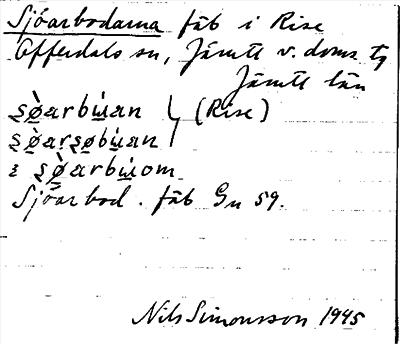 Sjöarbodarna fäb i Rise
Offerdals sn, Jämtl v. doms tg
Jämtl län
sø̀arbu̇an } (Rise)
sø̀arsøbu̇an
ɛ sø̀arbu̇om
Sjöarbod. fäb Gn 59.
Nils Simonsson 1945